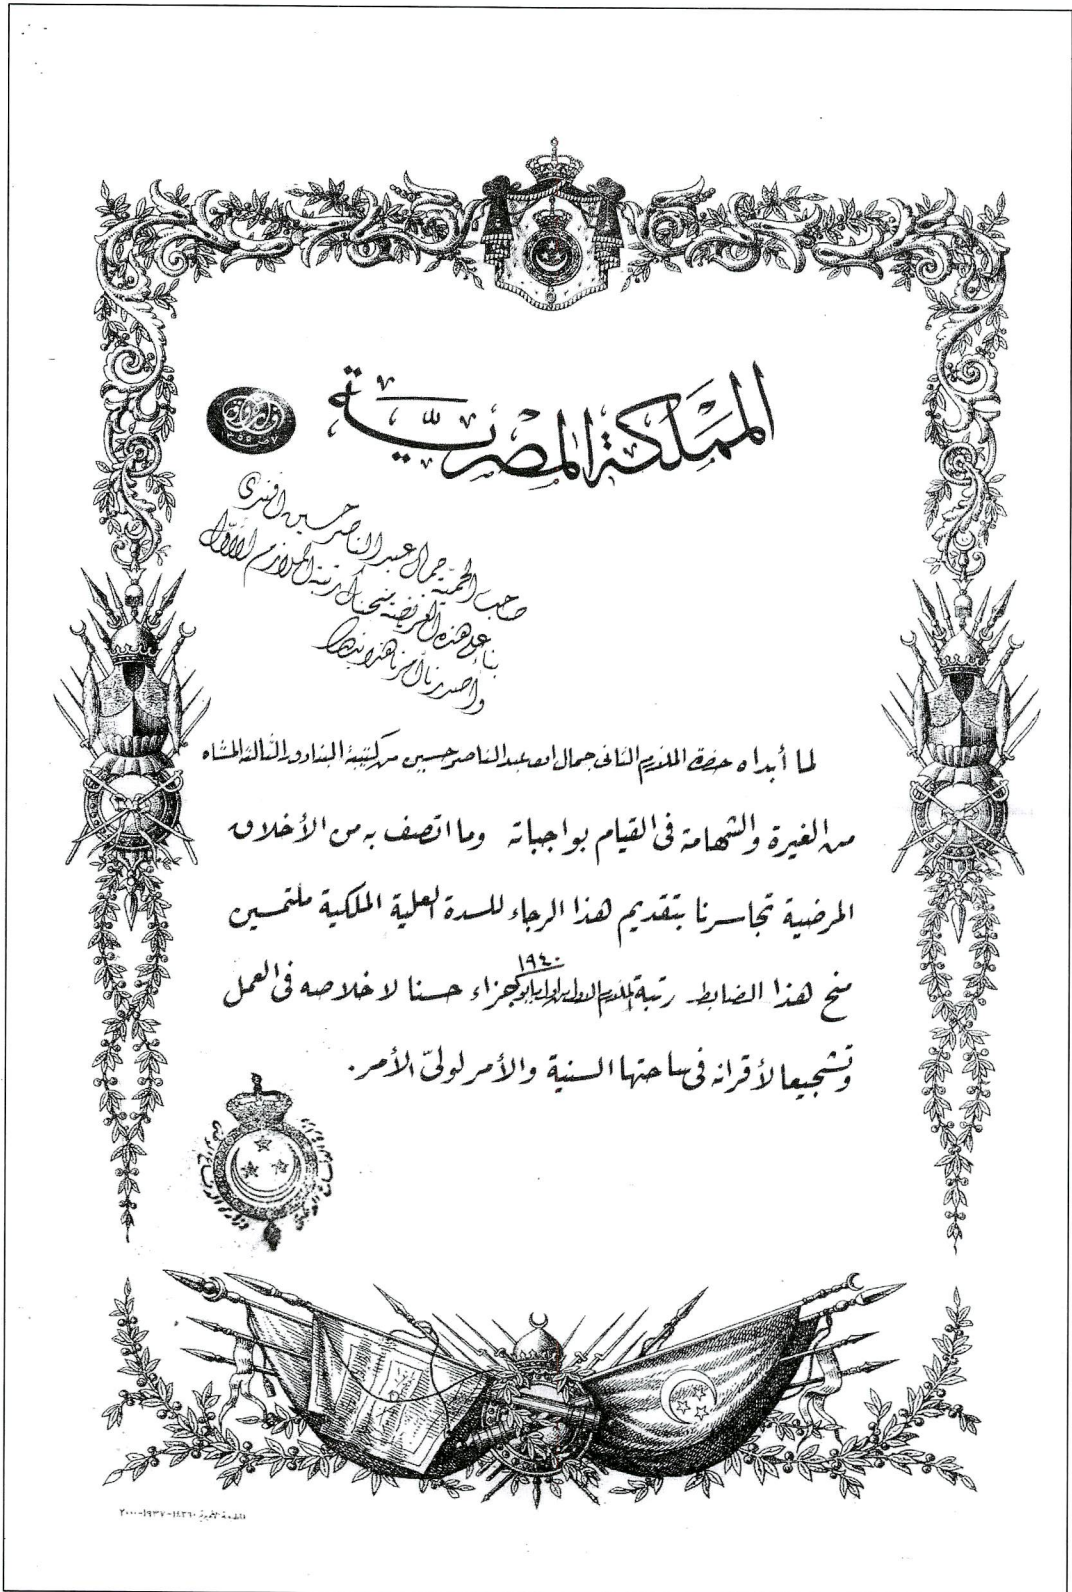 المملكة المصرية
صاحب الحمية جمال عبد الناصر حسين افندى
بناء على هذه العريضة منحناك رتبة الملازم الأول
وأصدرنا أمرنا هذا بذلك
لما أبداه حضرة الملازم الثانى جمال عبد الناصر حسين من كتيبة البنادق الثالثة المشاه
من الغيرة والشهامة فى القيام بواجباته وما اتصف به من الأخلاق
المرضية تجاسرنا بتقديم هذا الرجاء للسدة العلية الملكية ملتمسين
١٩٤٠
منح هذا الضابط رتبة الملازم الاول جزاء حسنا لاخلاصه فى العمل
وتشجيعا لأقرانه فى ساحتها السنية والأمر لولىّ الأمر.
المطبعة الأميرية ١٤٣٦٠-١٩٣٧-٢٠٠٠